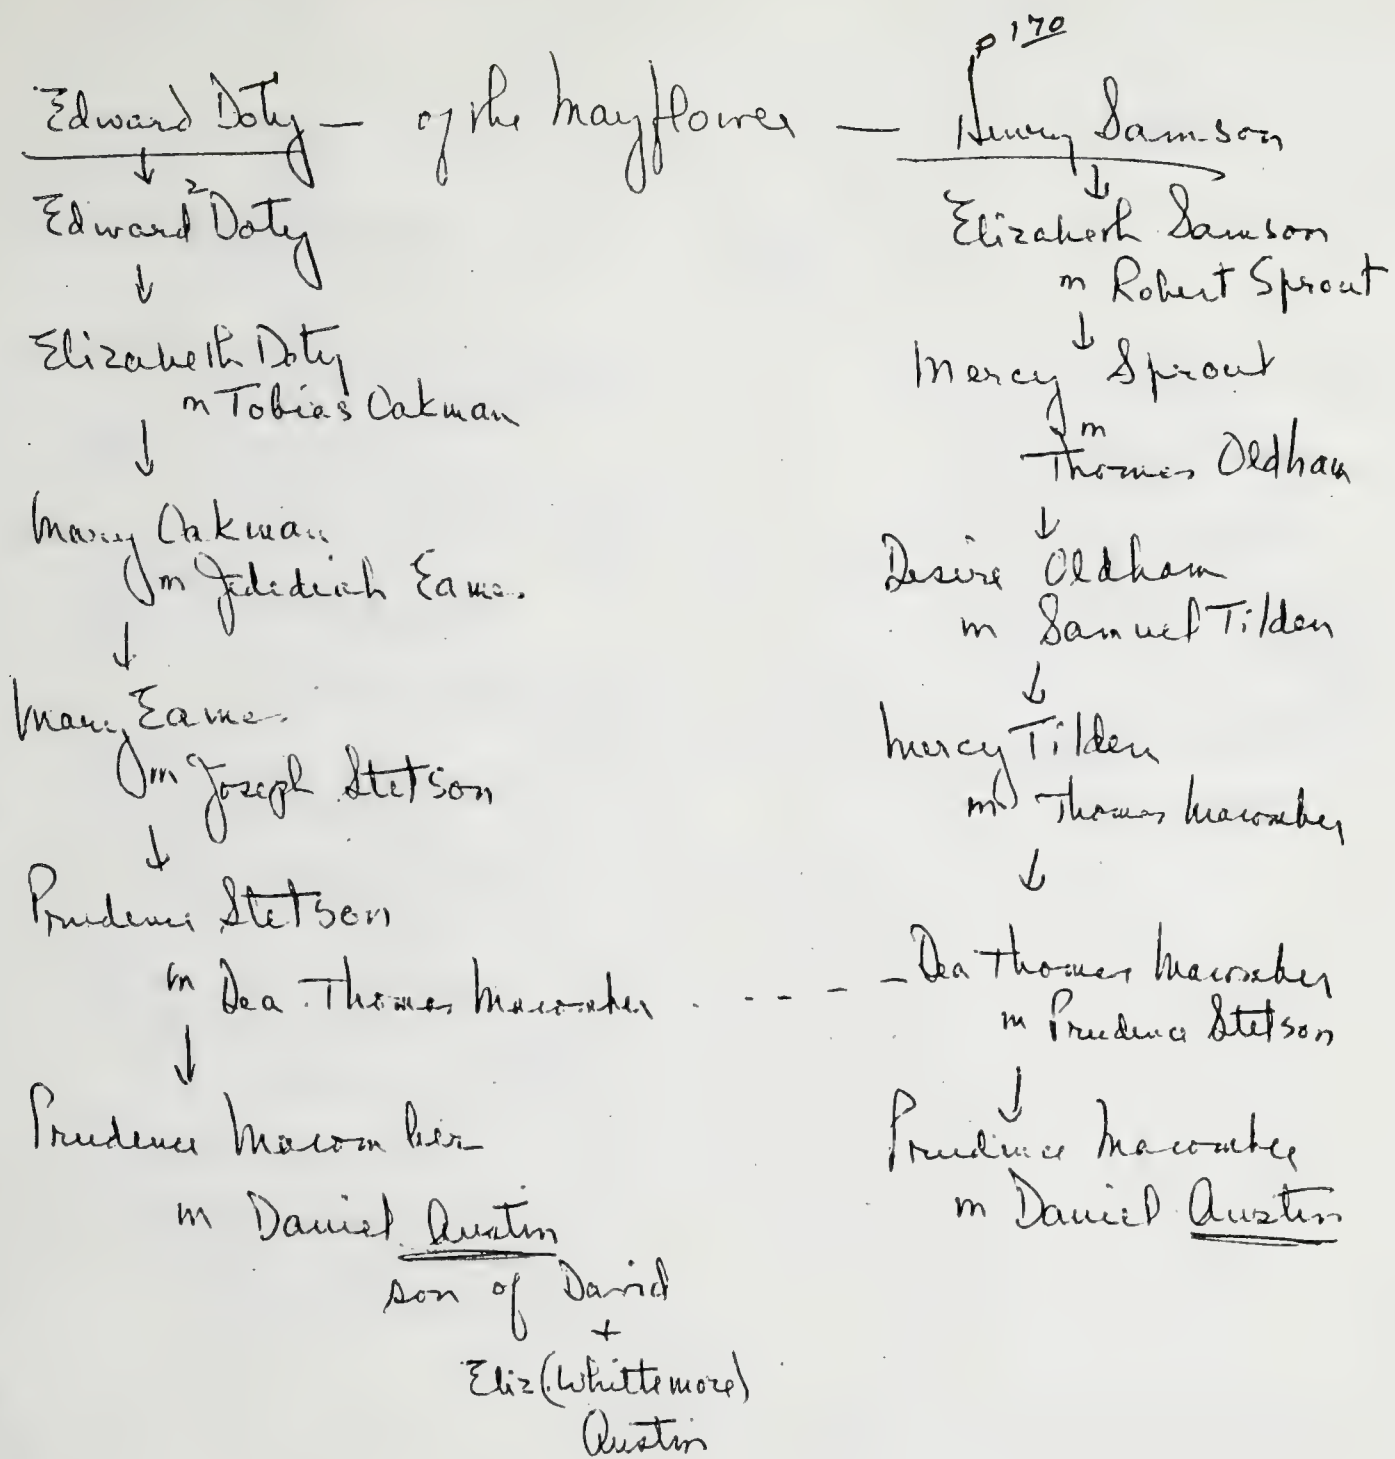 p 170
Edward Doty — of the Mayflower — Henry Samson
Edward ² Doty
Elizabeth Doty
m Tobias Oakman
Mary Oakman
m Jedidiah Eames
Mary Eames
m Joseph Stetson
Prudence Stetson
m Dea. Thomas Macomber . - - - -
Prudence Macomber
m Daniel Austin
son of David
+
Eliz (Whittemore)
Austin
Elizabeth Samson
m Robert Sprout
Mercy Sprout
m
Thomas Oldham
Desire Oldham
m Samuel Tilden
Mercy Tilden
m Thomas Macomber
Dea Thomas Macomber
m Prudence Stetson
Prudence Macomber
m Daniel Austin